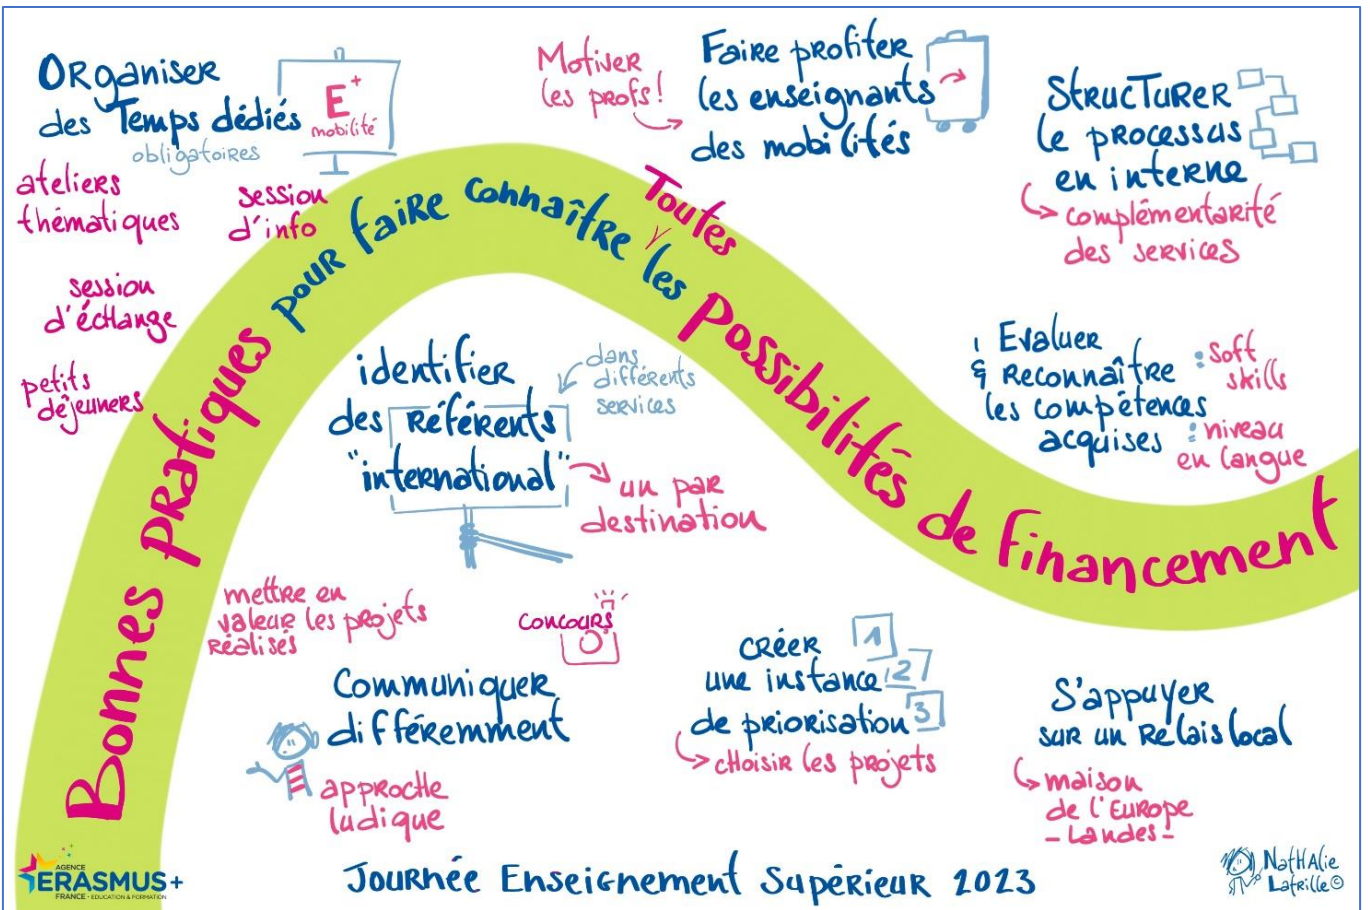 Bonnes pratiques pour faire connaître Toutes les possibilités de financement
Organiser
des Temps dédiés
obligatoires
E+
mobilité
ateliers
thématiques
session
d'info
session
d'échange
petits
déjeuners
Motiver
les profs!
Faire profiter
les enseignants
des mobilités
Structurer
le processus
en interne
complémentarité
des services
identifier
des Référents
"international"
dans
différents
services
un par
destination
Evaluer
& Reconnaître
les compétences
acquises
: Soft
skills
: niveau
en langue
mettre en
valeur les projets
réalisés
concours
Communiquer
différemment
approche
ludique
créer
une instance
de priorisation
1
2
3
choisir les projets
S'appuyer
sur un Relais local
maison
de l'Europe
- Landes -
AGENCE
ERASMUS+
FRANCE • EDUCATION & FORMATION
Journée Enseignement Supérieur 2023
Nathalie
Latrille©